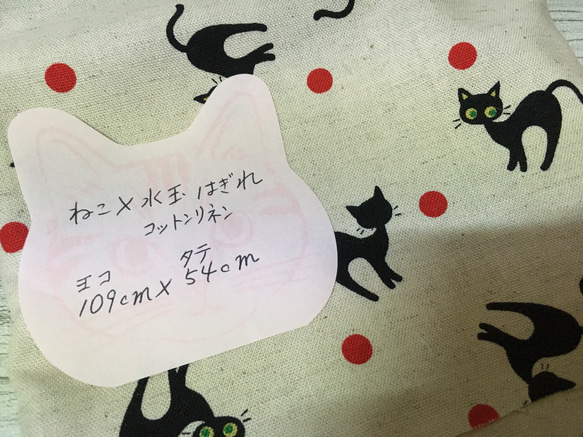 ねこ×水玉はぎれ
コットンリネン
ヨコ タテ
109cm×54cm